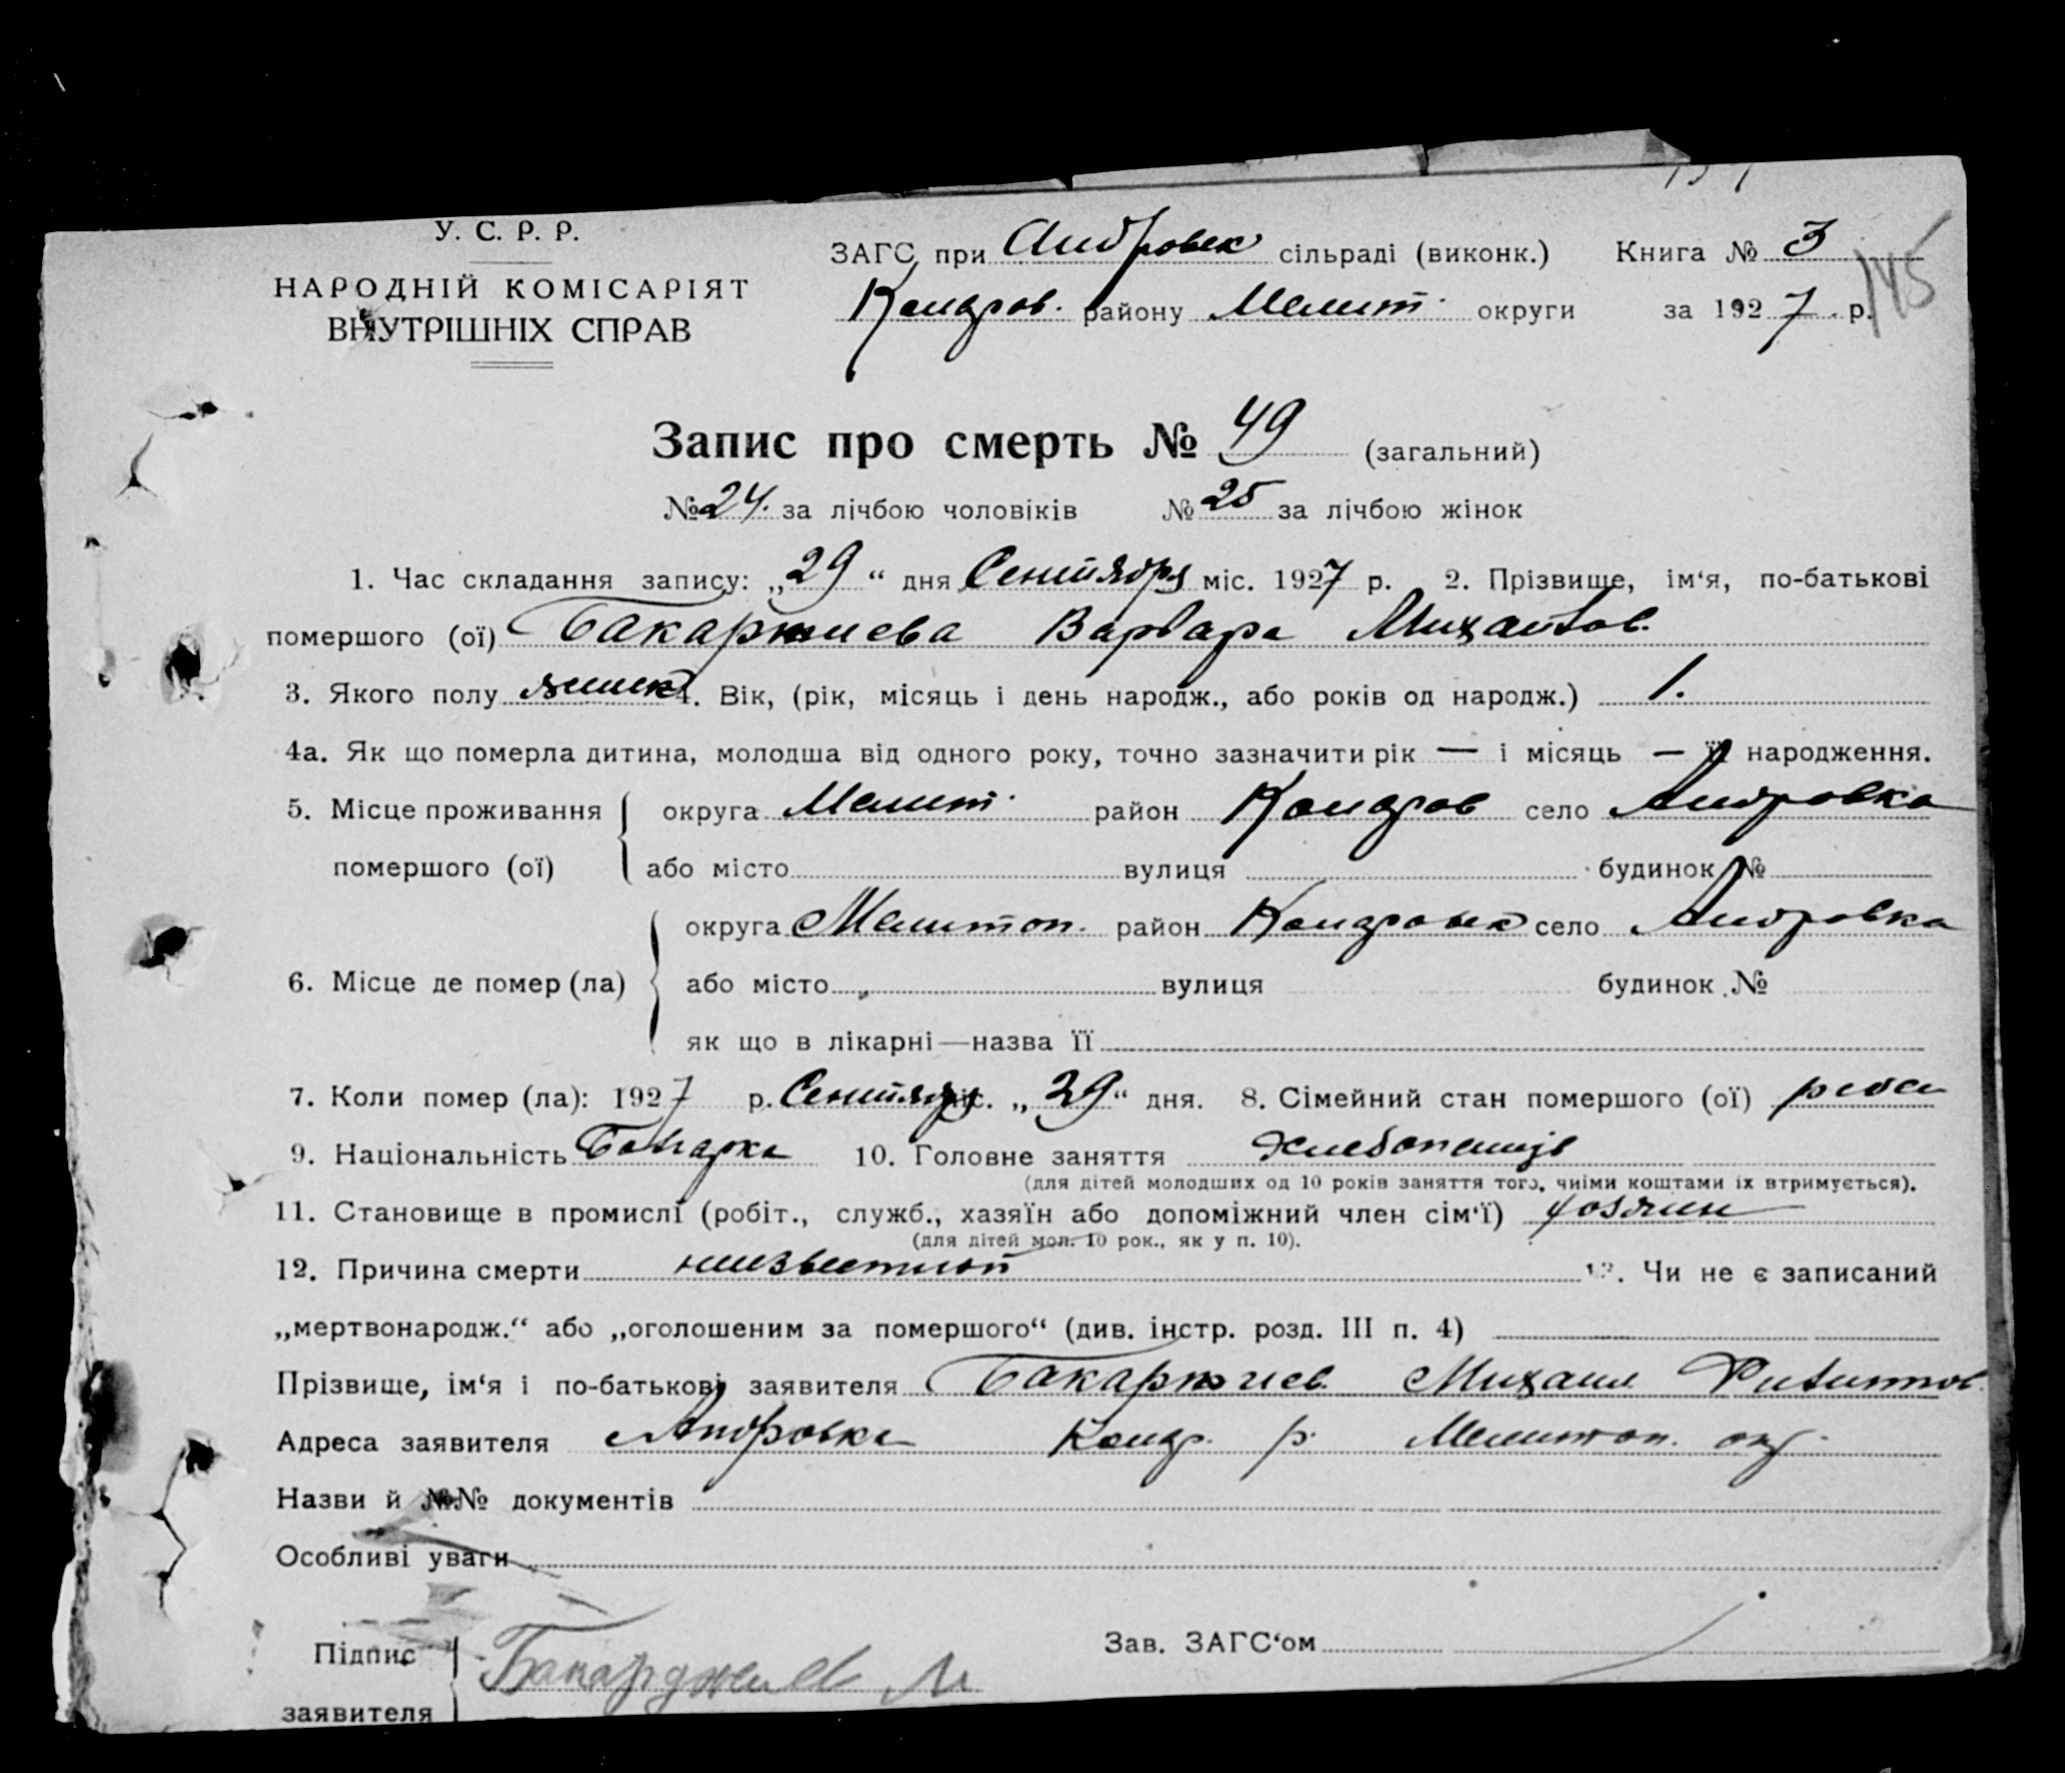 У. С. Р. Р.
НАРОДНІЙ КОМІСАРІЯТ
ВНУТРІШНІХ СПРАВ
ЗАГС при Андровск сільраді (виконк.) Книга № 3
району Мелит. округи за 1927 р.
145
Запис про смерть № 49 (загальний)
№ 24. за лічбою чоловіків № 25 за лічбою жінок
1. Час складання запису: „29“ дня Сентября міс. 1927 р. 2. Прізвище, ім‘я, по-батькові
помершого (ої) Бакаржиева Варвара Михайлов.
3. Якого полу женск 4. Вік, (рік, місяць і день народж., або років од народж.) 1.
4а. Як що померла дитина, молодша від одного року, точно зазначити рік — і місяць — її народження.
5. Місце проживання округа Мелит. район село Андровка
помершого (ої) або місто вулиця будинок №
округа Мелитоп. район село Андровка
6. Місце де помер (ла) або місто вулиця будинок №
як що в лікарні—назва її
7. Коли помер (ла): 1927 р. Сентября міс. „29“ дня. 8. Сімейний стан помершого (ої)
9. Національність Болгарка 10. Головне заняття Хлебопашцв
(для дітей молодших од 10 років заняття того, чиїми коштами їх втримується).
11. Становище в промислі (робіт., служб., хазяїн або допоміжний член сім‘ї) хозяин
(для дітей мол. 10 рок., як у п. 10).
12. Причина смерти 13. Чи не є записаний
„мертвонародж.“ або „оголошеним за помершого“ (див. інстр. розд. III п. 4)
Прізвище, ім‘я і по-батькові заявителя Бакаржиев. Михаил Филиппов.
Адреса заявителя Андровка р. Мелитоп. окр.
Назви й №№ документів
Особливі уваги
Підпис Бакарджиев М Зав. ЗАГС‘ом
заявителя